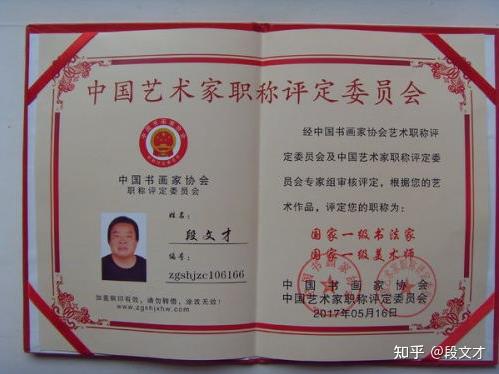 中国艺术家职称评定委员会
中国书画家协会
职称评定委员会
姓名：
段文才
编号：
zgshjzc106166
加盖钢印有效，请勿转借，涂改无效！
www.zgshjxhw.com
经中国书画家协会艺术职称评
定委员会及中国艺术家职称评定委
员会专家组审核评定，根据您的艺
术作品，评定您的职称为：
国家一级书法家
国家一级美术师
中国书画家协会
中国艺术家职称评定委员会
2017年05月16日
知乎 @段文才